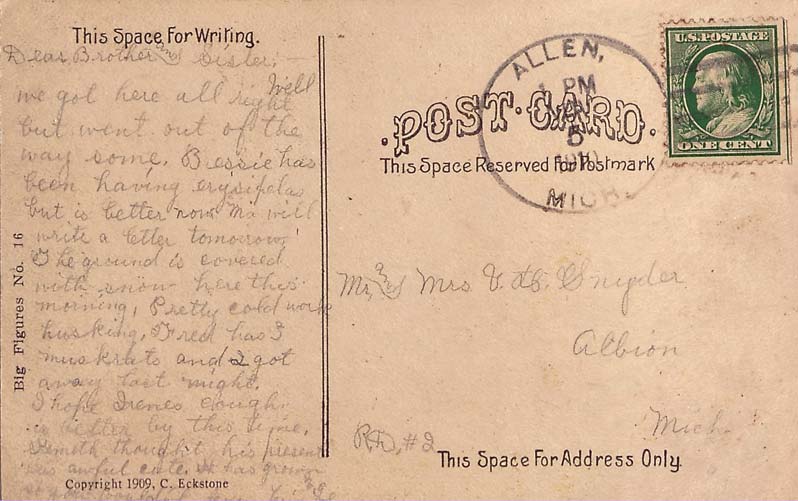 This Space For Writing.
Dear Brother and Sister:—
Well
we got here all right
but went out of the
way some. Bessie has
been having erysipelas
but is better now. Ma will
write a letter tomorrow.
The ground is covered
with snow here this
morning. Pretty cold work
husking. Fred has 3
muskrats and 2 got
away last night.
I hope Irenes cough
is better by this time.
thought his present
was awful cute. has grown
Big Figures No. 16
Copyright 1909, C. Eckstone
POST CARD.
This Space Reserved for Postmark
ALLEN,
PM
5
MICH.
U.S. POSTAGE
ONE CENT
Mr. and Mrs V. Snyder
Albion
Mich.
RD, #2
This Space For Address Only.